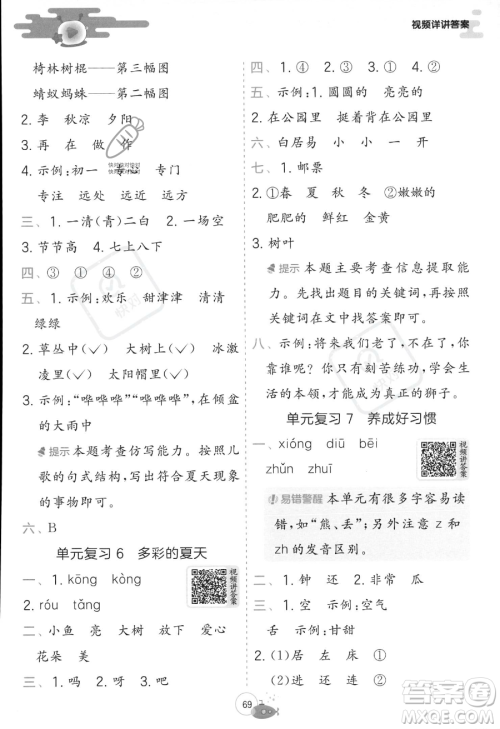 视频详讲答案
椅林树棍——第三幅图
蜻蚁蚂蛛——第二幅图
2. 李 秋凉 夕阳
3. 再 在 做 作
4. 示例:初一 专 专门
专注 远处 远近 远方
三、1. 一清(青)二白 2. 一场空
3. 节节高 4. 七上八下
四、③ ① ④ ②
五、1. 示例:欢乐 甜津津 清清
绿绿
2. 草丛中(✓) 大树上(✓) 冰激
凌屋里(✓) 太阳帽里(✓)
3. 示例:“哗哗哗”“哗哗哗”,在倾盆
的大雨中
提示 本题考查仿写能力。根据儿
歌的句式结构,写出符合夏天现象
的事物即可。
六、B
单元复习 6 多彩的夏天
一、1. kōng kòng
2. róu tǎng
视频讲答案
二、小鱼 亮 大树 放下 爱心
花朵 美
三、1. 吧 2. 呀 3. 吧
四、1. ④ 2. ① ② ③
五、示例:1. 圆圆的 亮亮的
2. 在公园里 在公园里
六、白居易 小 小 一 开
七、1. 邮票
2. ①春 夏 秋 冬 ②嫩嫩的
肥肥的 鲜红 金黄
3. 树叶
提示 本题主要考查信息提取能
力。先找到题目的关键词,再根据
关键词在文中找出答案即可。
八、示例:将来我们老了,不在了,你可
怎么办呢? 你只有刻苦练功,学会生
活的本领,才能成为真正的狮子。
单元复习 7 养成好习惯
一、xióng diū bēi
zhǔn zhuī
视频讲答案
易错警醒 本单元有许多字容易读
错,如“熊、丢”;另外,应注意 z 和
zh 的发音区别。
二、钟 元 迟 洗 非常 已经
三、1. 空 示例:空气
舌 示例:甘甜
2. (1)居 左 床 ①
(2)进 还 连 ②
69